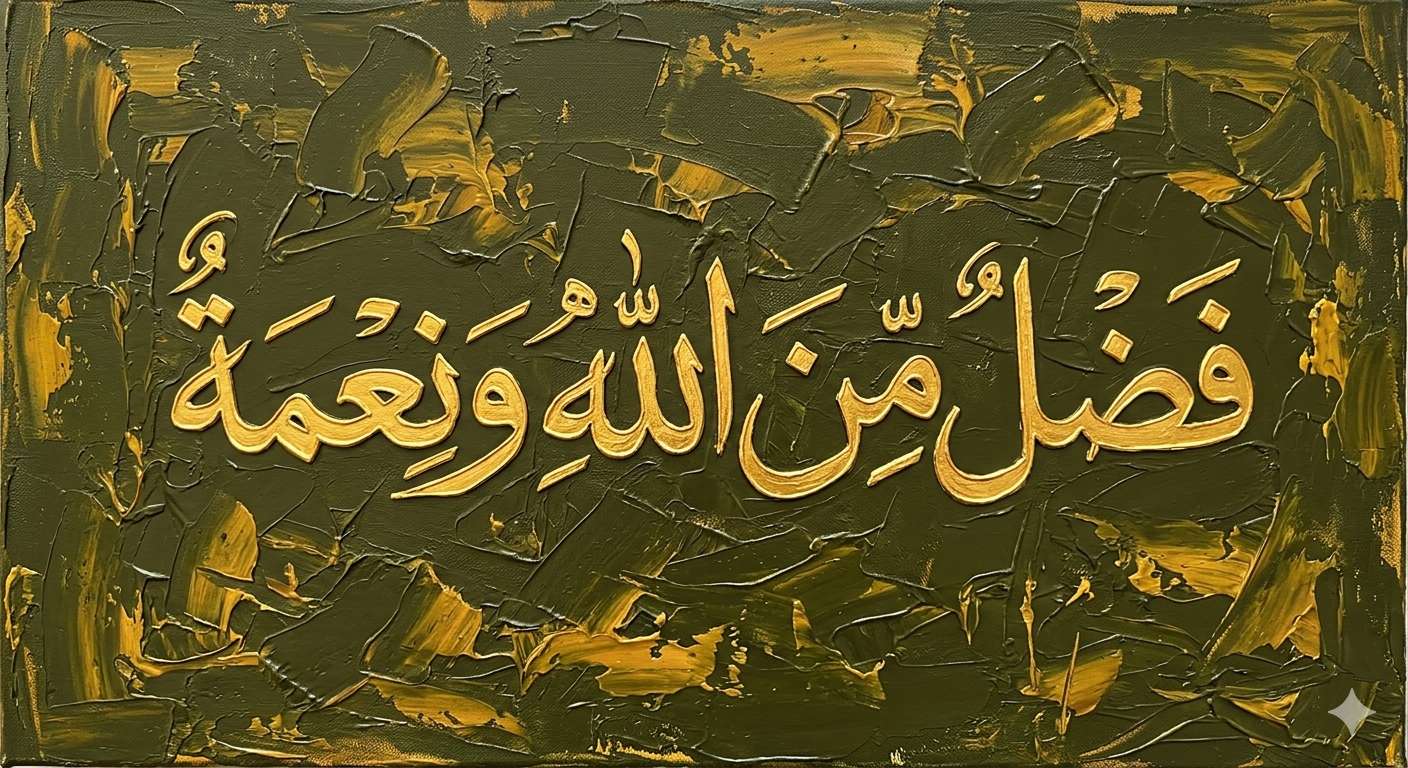 فَضْلٌ مِّنَ اللّٰهِ وَنِعْمَةٌ